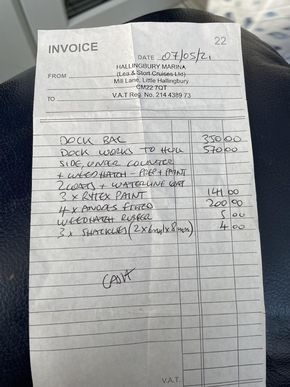 22
INVOICE
DATE 07/05/21
HALLINGBURY MARINA
FROM (Lea & Stort Cruises Ltd)
Mill Lane, Little Hallingbury
CM22 7QT
TO V.A.T Reg. No. 214 4389 73
DOCK BAC 350 00
DOCK WORKS TO HULL 570 00
SIDE, UNDER COUNTER
+ WEEDHATCH - PREP + PAINT
2 COATS + WATERLINE COAT
3 x RYTEX PAINT 141 00
4 x ANODES FITTED 200 00
WEEDHATCH RUBBER 5 00
3 x SHACKLES (2 x 6 x 8) 4 00
CASH
V.A.T.